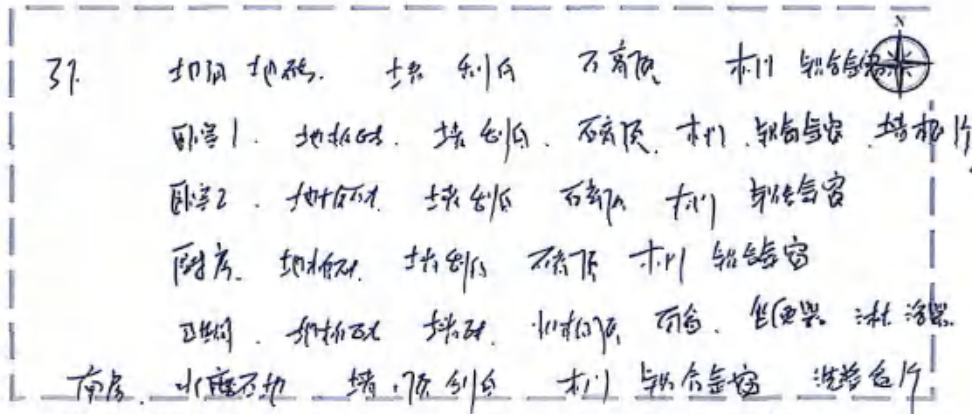 37. 地砖. 墙刮白 石膏顶 木门 铝合金窗 N
卧室1. 地板砖. 墙刮白. 石膏顶. 木门. 铝合金窗.
卧室2. 地板砖. 墙刮白 石膏顶 木门 铝合金窗
厨房. 地板砖. 墙刮白 石膏顶 木门 铝合金窗
卫生间. 地板砖 墙砖. 顶. 坐便器. 淋浴器.
水磨石地 墙.顶刮白 木门 铝合金窗 洗漱台1个